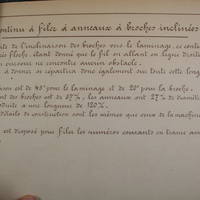 continu à filer à anneaux à broches inclinées
de l'inclinaison des broches sous le laminage, ce
floche, étant donné que le fil en allant en ligne droite
ou curseur ne rencontre aucun obstacle.
à donner se répartira donc également sur toute cette
est de 45° pour le laminage et de 20° pour la broche.
des broches est de 57 %, les anneaux ont 27 %
à une longueur de 120 %.
détails de construction sont les mêmes que ceux de la machine
est disposé pour filer les numéros courants en trame